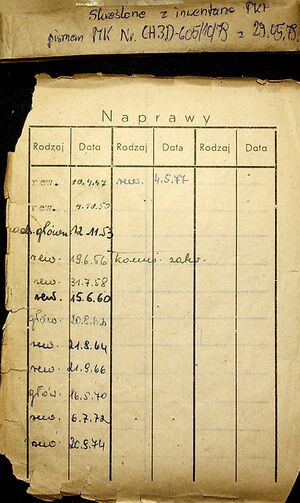 Skreślone z inwentarza PKP
pismem MK Nr. CH3D-605/10/78 z 29.05.78
Naprawy
Rodzaj Data Rodzaj Data Rodzaj Data
rew. 10.4.47 rew. 4.5.77
rew.
główn. 12.11.53
rew. 19.6.56
rew. 31.7.58
rew. 15.6.60
główn. 20.8.62
rew. 21.8.64
rew. 21.9.66
główn. 16.5.70
rew. 6.7.72
rew. 20.9.74